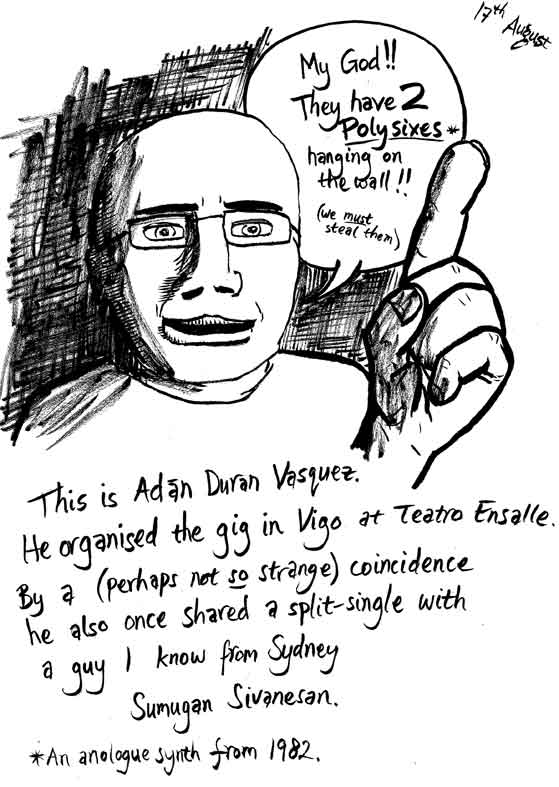 17th
August
My God!!
They have 2
Polysixes *
hanging on
the wall!!
(we must
steal them)
This is Adān Duran Vasquez.
He organised the gig in Vigo at Teatro Ensalle.
By a (perhaps not so strange) coincidence
he also once shared a split-single with
a guy I know from Sydney
Sumugan Sivanesan.
*An anologue synth from 1982.